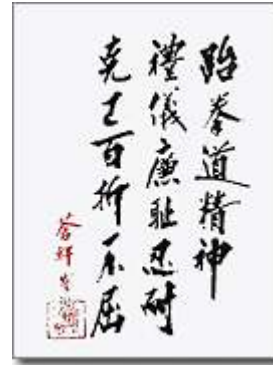 跆拳道精神
禮儀廉耻忍耐
克己百折不屈